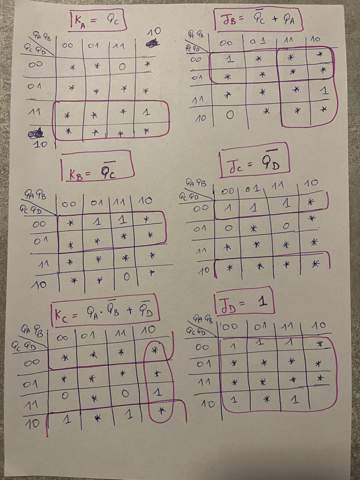 K_A = Q_C
Q_A Q_B
Q_C Q_D
00 01 11 10
00 * * 0 *
01 * * * *
11 * * * 1
10 * * * *
J_B = \overline{Q_C} + Q_A
Q_A Q_B
Q_C Q_D
00 01 11 10
00 1 * * *
01 * * * *
11 * * * 1
10 0 * * *
K_B = \overline{Q_C}
Q_A Q_B
Q_C Q_D
00 01 11 10
00 * 1 1 *
01 * * * *
11 * * * *
10 * * 0 *
J_C = \overline{Q_D}
Q_A Q_B
Q_C Q_D
00 01 11 10
00 1 1 1 *
01 0 * 0 *
11 * * * *
10 * * * *
K_C = Q_A · \overline{Q_B} + \overline{Q_D}
Q_A Q_B
Q_C Q_D
00 01 11 10
00 * * * *
01 * * * *
11 0 * 0 1
10 1 * 1 *
J_D = 1
Q_A Q_B
Q_C Q_D
00 01 11 10
00 1 1 1 *
01 * * * *
11 * * * *
10 1 * 1